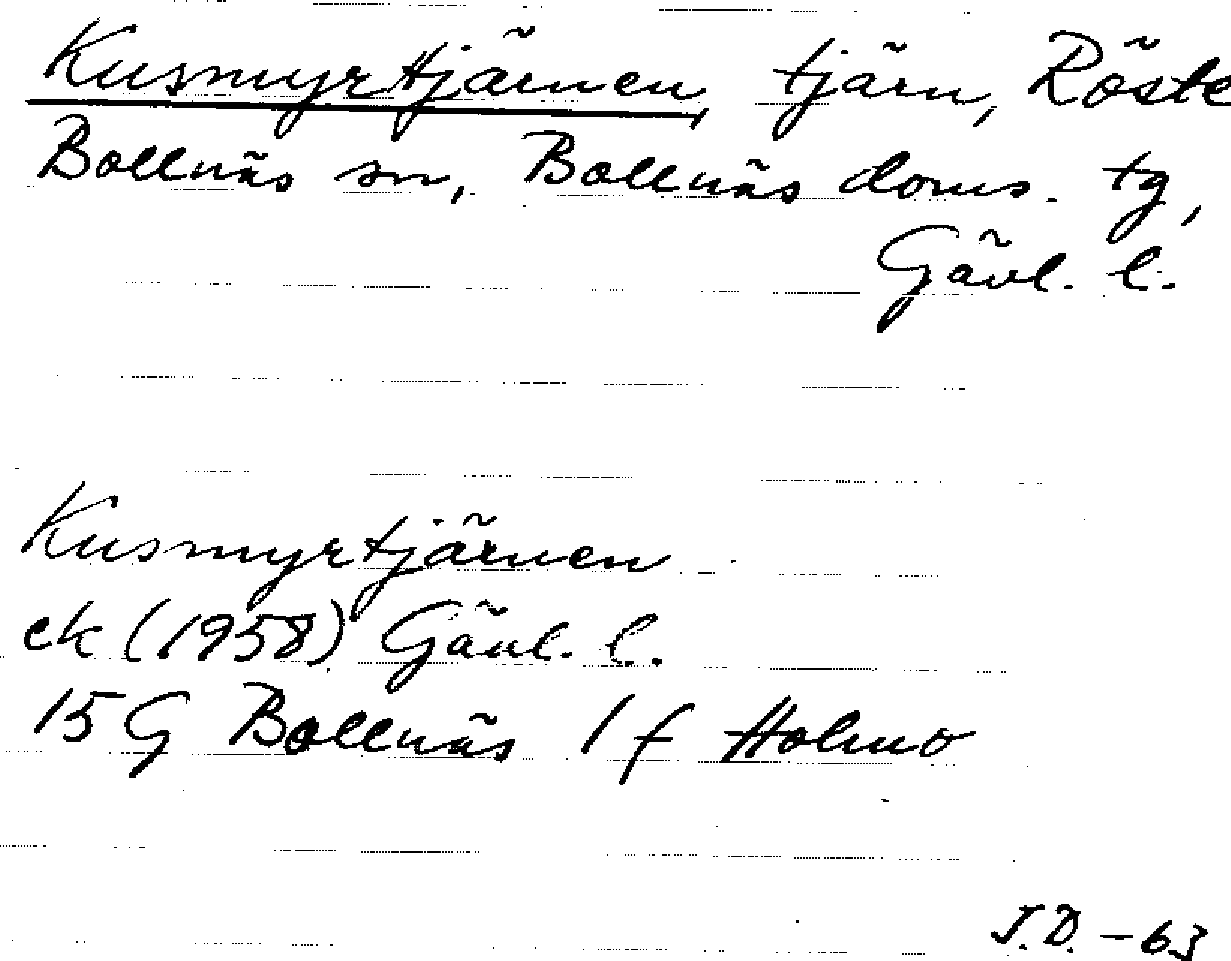 Kusmyrtjärnen, tjärn, Röste
Bollnäs sn, Bollnäs doms. tg,
Gävl. l.
Kusmyrtjärnen
ek (1958) Gävl. l.
15 G Bollnäs 1 f Holmo
J.D. -63